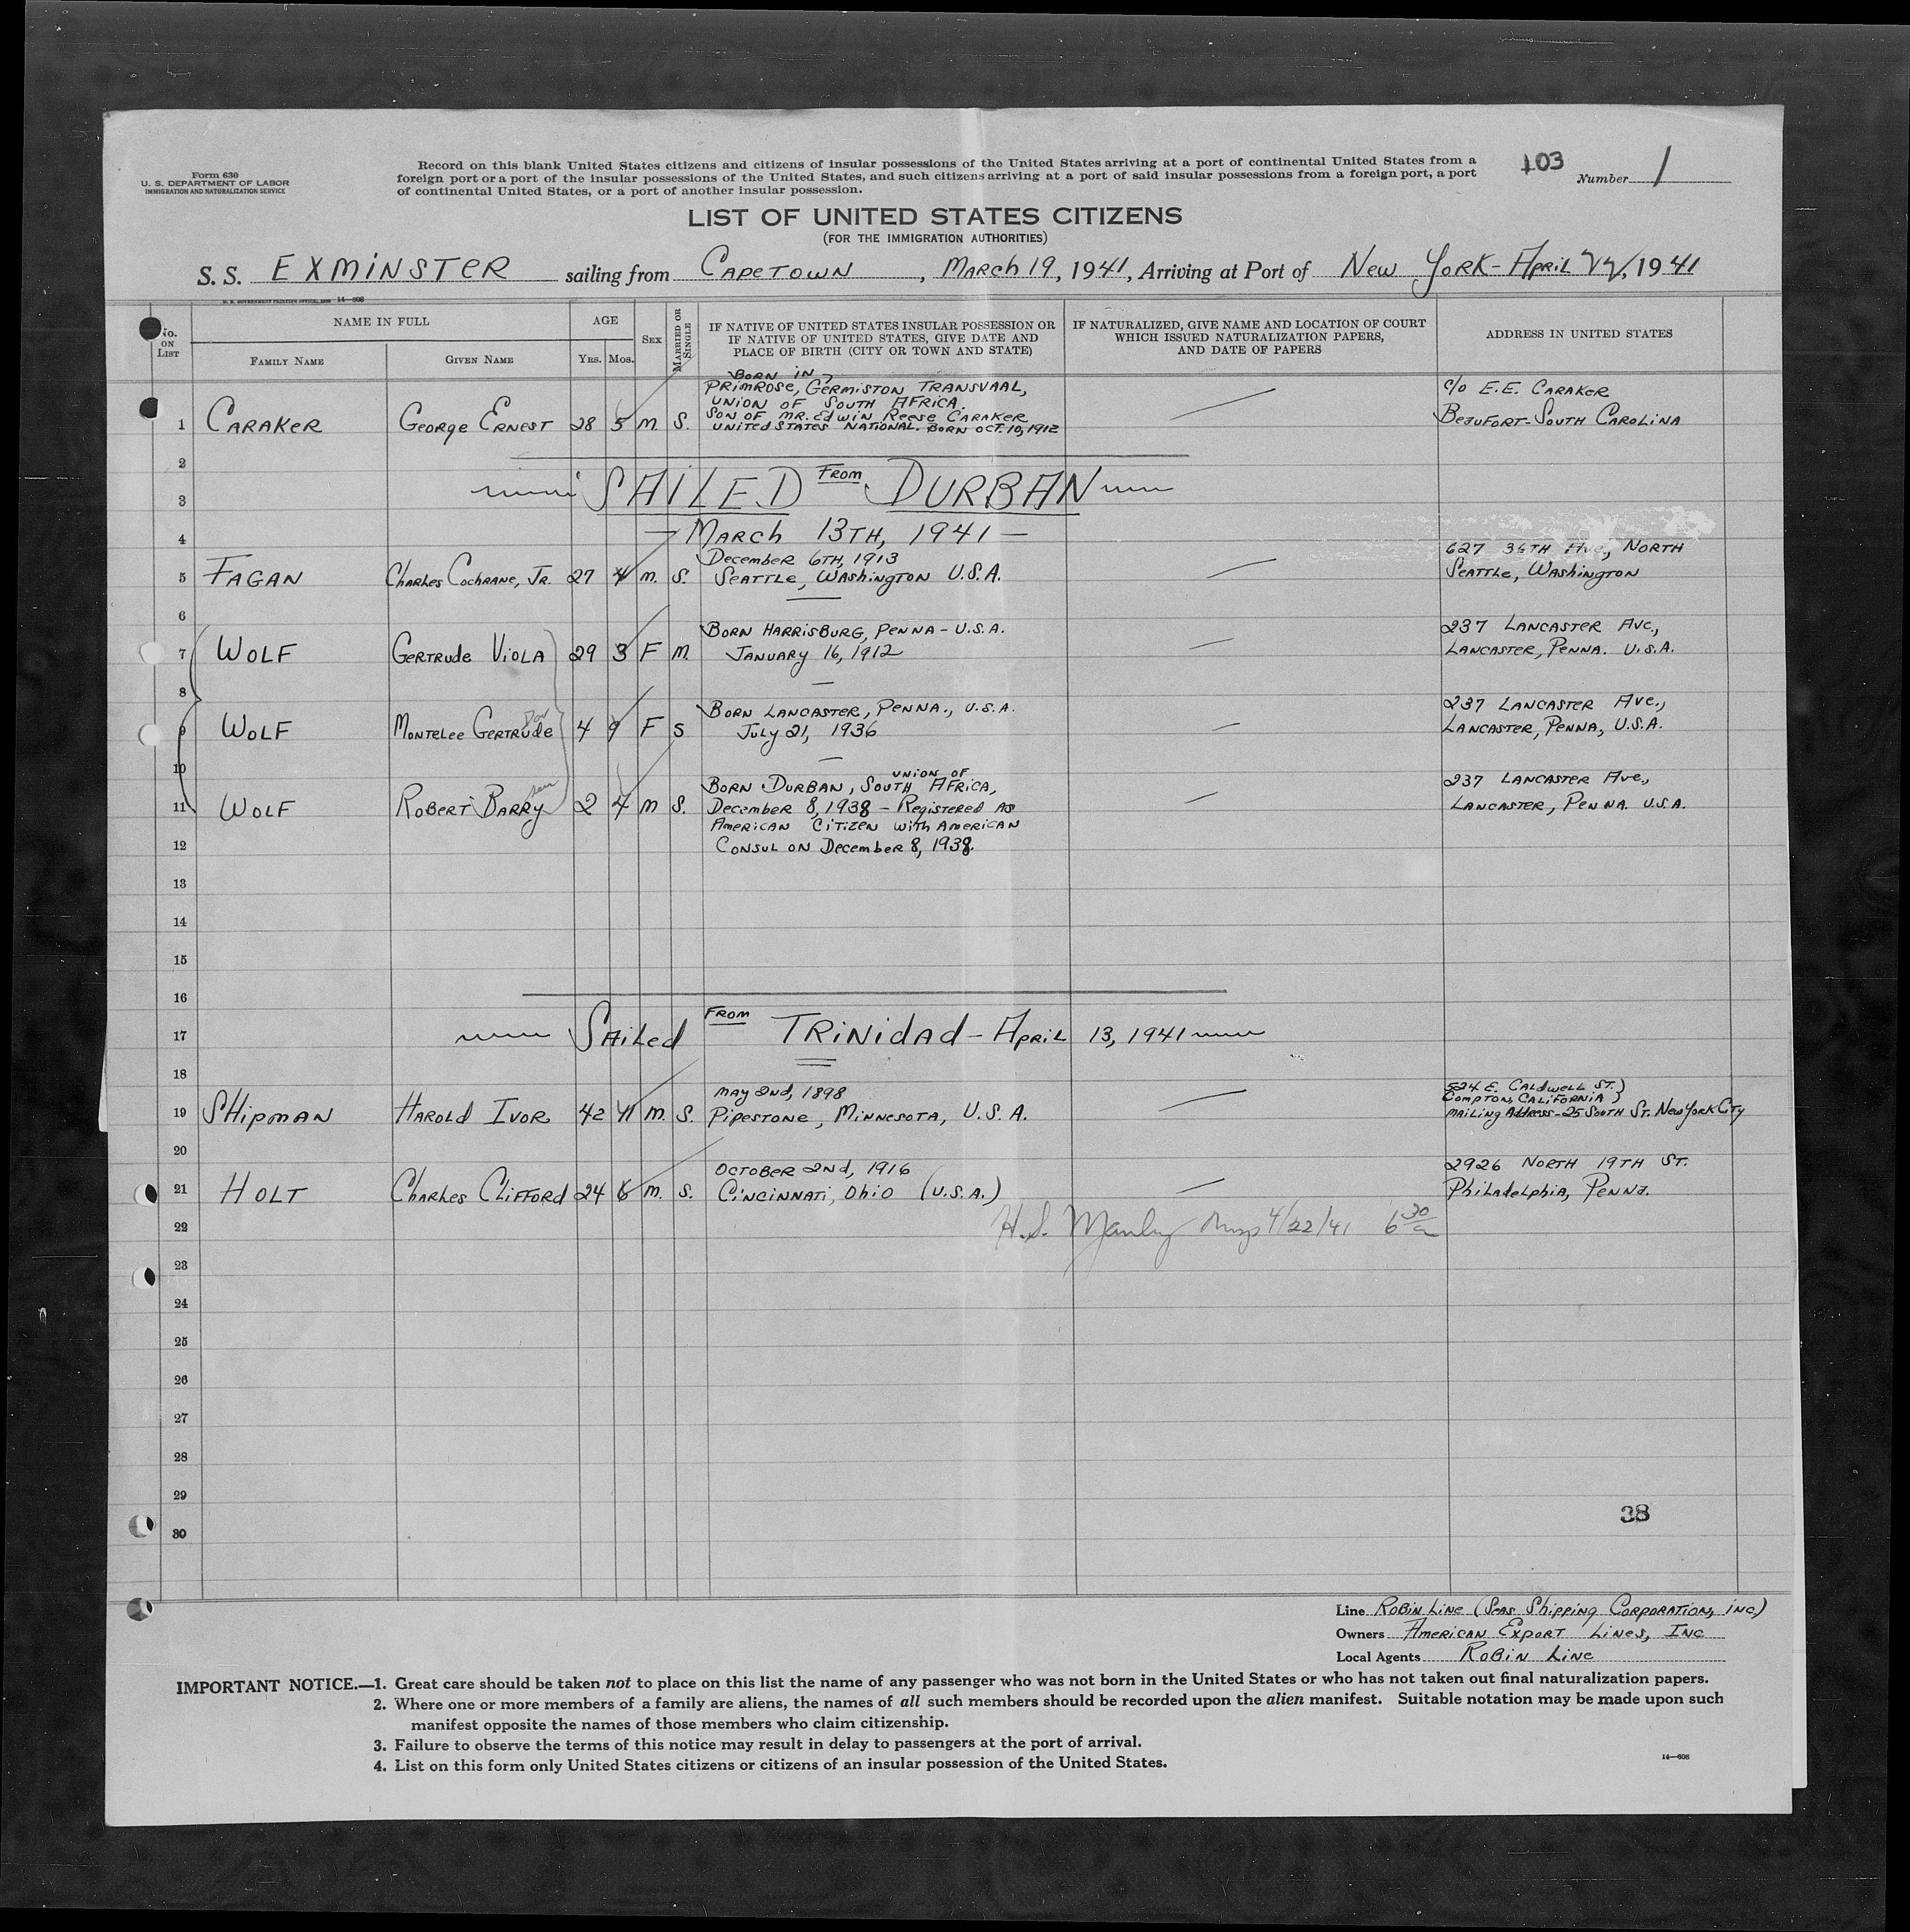 Form 630
U. S. DEPARTMENT OF LABOR
IMMIGRATION AND NATURALIZATION SERVICE
Record on this blank United States citizens and citizens of insular possessions of the United States arriving at a port of continental United States from a
foreign port or a port of the insular possessions of the United States, and such citizens arriving at a port of said insular possessions from a foreign port, a port
of continental United States, or a port of another insular possession.
103
Number 1
LIST OF UNITED STATES CITIZENS
(FOR THE IMMIGRATION AUTHORITIES)
S. S. EXMINSTER sailing from CAPETOWN, MARCH 19, 1941, Arriving at Port of NEW YORK - APRIL 22, 1941
U. S. GOVERNMENT PRINTING OFFICE 14—606
No. ON LIST
NAME IN FULL
FAMILY NAME
GIVEN NAME
AGE
YRS. MOS.
SEX
MARRIED OR SINGLE
IF NATIVE OF UNITED STATES INSULAR POSSESSION OR
IF NATIVE OF UNITED STATES, GIVE DATE AND
PLACE OF BIRTH (CITY OR TOWN AND STATE)
IF NATURALIZED, GIVE NAME AND LOCATION OF COURT
WHICH ISSUED NATURALIZATION PAPERS,
AND DATE OF PAPERS
ADDRESS IN UNITED STATES
BORN IN
PRIMROSE, GERMISTON TRANSVAAL,
UNION OF SOUTH AFRICA.
SON OF MR. EDWIN REESE CARAKER
UNITED STATES NATIONAL. BORN OCT. 10, 1912
1 CARAKER GEORGE ERNEST 28 5 M. S.
C/O E.E. CARAKER
BEAUFORT - SOUTH CAROLINA
2
3 SAILED FROM DURBAN
4 MARCH 13TH, 1941 —
5 FAGAN CHARLES COCHRANE, JR. 27 4 M. S.
DECEMBER 6TH, 1913
SEATTLE, WASHINGTON U.S.A.
627 34TH AVE, NORTH
SEATTLE, WASHINGTON
6
7 WOLF GERTRUDE VIOLA 29 3 F M.
BORN HARRISBURG, PENNA - U.S.A.
JANUARY 16, 1912
237 LANCASTER AVE.,
LANCASTER, PENNA. U.S.A.
8
9 WOLF MONTELEE GERTRUDE 4 9 F S
BORN LANCASTER, PENNA., U.S.A.
JULY 21, 1936
237 LANCASTER AVE.,
LANCASTER, PENNA, U.S.A.
10
11 WOLF ROBERT BARRY son 2 4 M S.
BORN DURBAN, UNION OF SOUTH AFRICA,
DECEMBER 8, 1938 - REGISTERED AS
AMERICAN CITIZEN WITH AMERICAN
CONSUL ON DECEMBER 8, 1938.
237 LANCASTER AVE.,
LANCASTER, PENNA. U.S.A.
12
13
14
15
16
17 SAILED FROM TRINIDAD - APRIL 13, 1941
18
19 SHIPMAN HAROLD IVOR 42 11 M. S.
MAY 2ND, 1898
PIPESTONE, MINNESOTA, U.S.A.
524 E. CALDWELL ST.)
COMPTON, CALIFORNIA )
MAILING ADDRESS - 25 SOUTH ST. NEW YORK CITY
20
21 HOLT CHARLES CLIFFORD 24 6 M. S.
OCTOBER 2ND, 1916
CINCINNATI, OHIO (U.S.A.)
2926 NORTH 19TH ST.
PHILADELPHIA, PENNA.
22 H.S. 4/22/41 6 30 a
23
24
25
26
27
28
29
30
38
Line ROBIN LINE (SEAS SHIPPING CORPORATION, INC)
Owners AMERICAN EXPORT LINES, INC
Local Agents ROBIN LINE
IMPORTANT NOTICE.—1. Great care should be taken not to place on this list the name of any passenger who was not born in the United States or who has not taken out final naturalization papers.
2. Where one or more members of a family are aliens, the names of all such members should be recorded upon the alien manifest. Suitable notation may be made upon such
manifest opposite the names of those members who claim citizenship.
3. Failure to observe the terms of this notice may result in delay to passengers at the port of arrival.
4. List on this form only United States citizens or citizens of an insular possession of the United States.
14—606